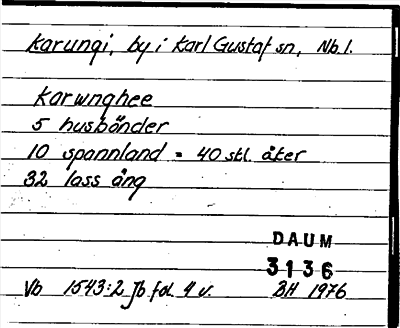 Karungi, by i Karl Gustaf sn, Nb l.
Karwnghee
5 husbönder
10 spannland = 40 skl. åker
32 lass äng
DAUM
3136
Vb 1543:2 Jb fol. 4 v. BH 1976